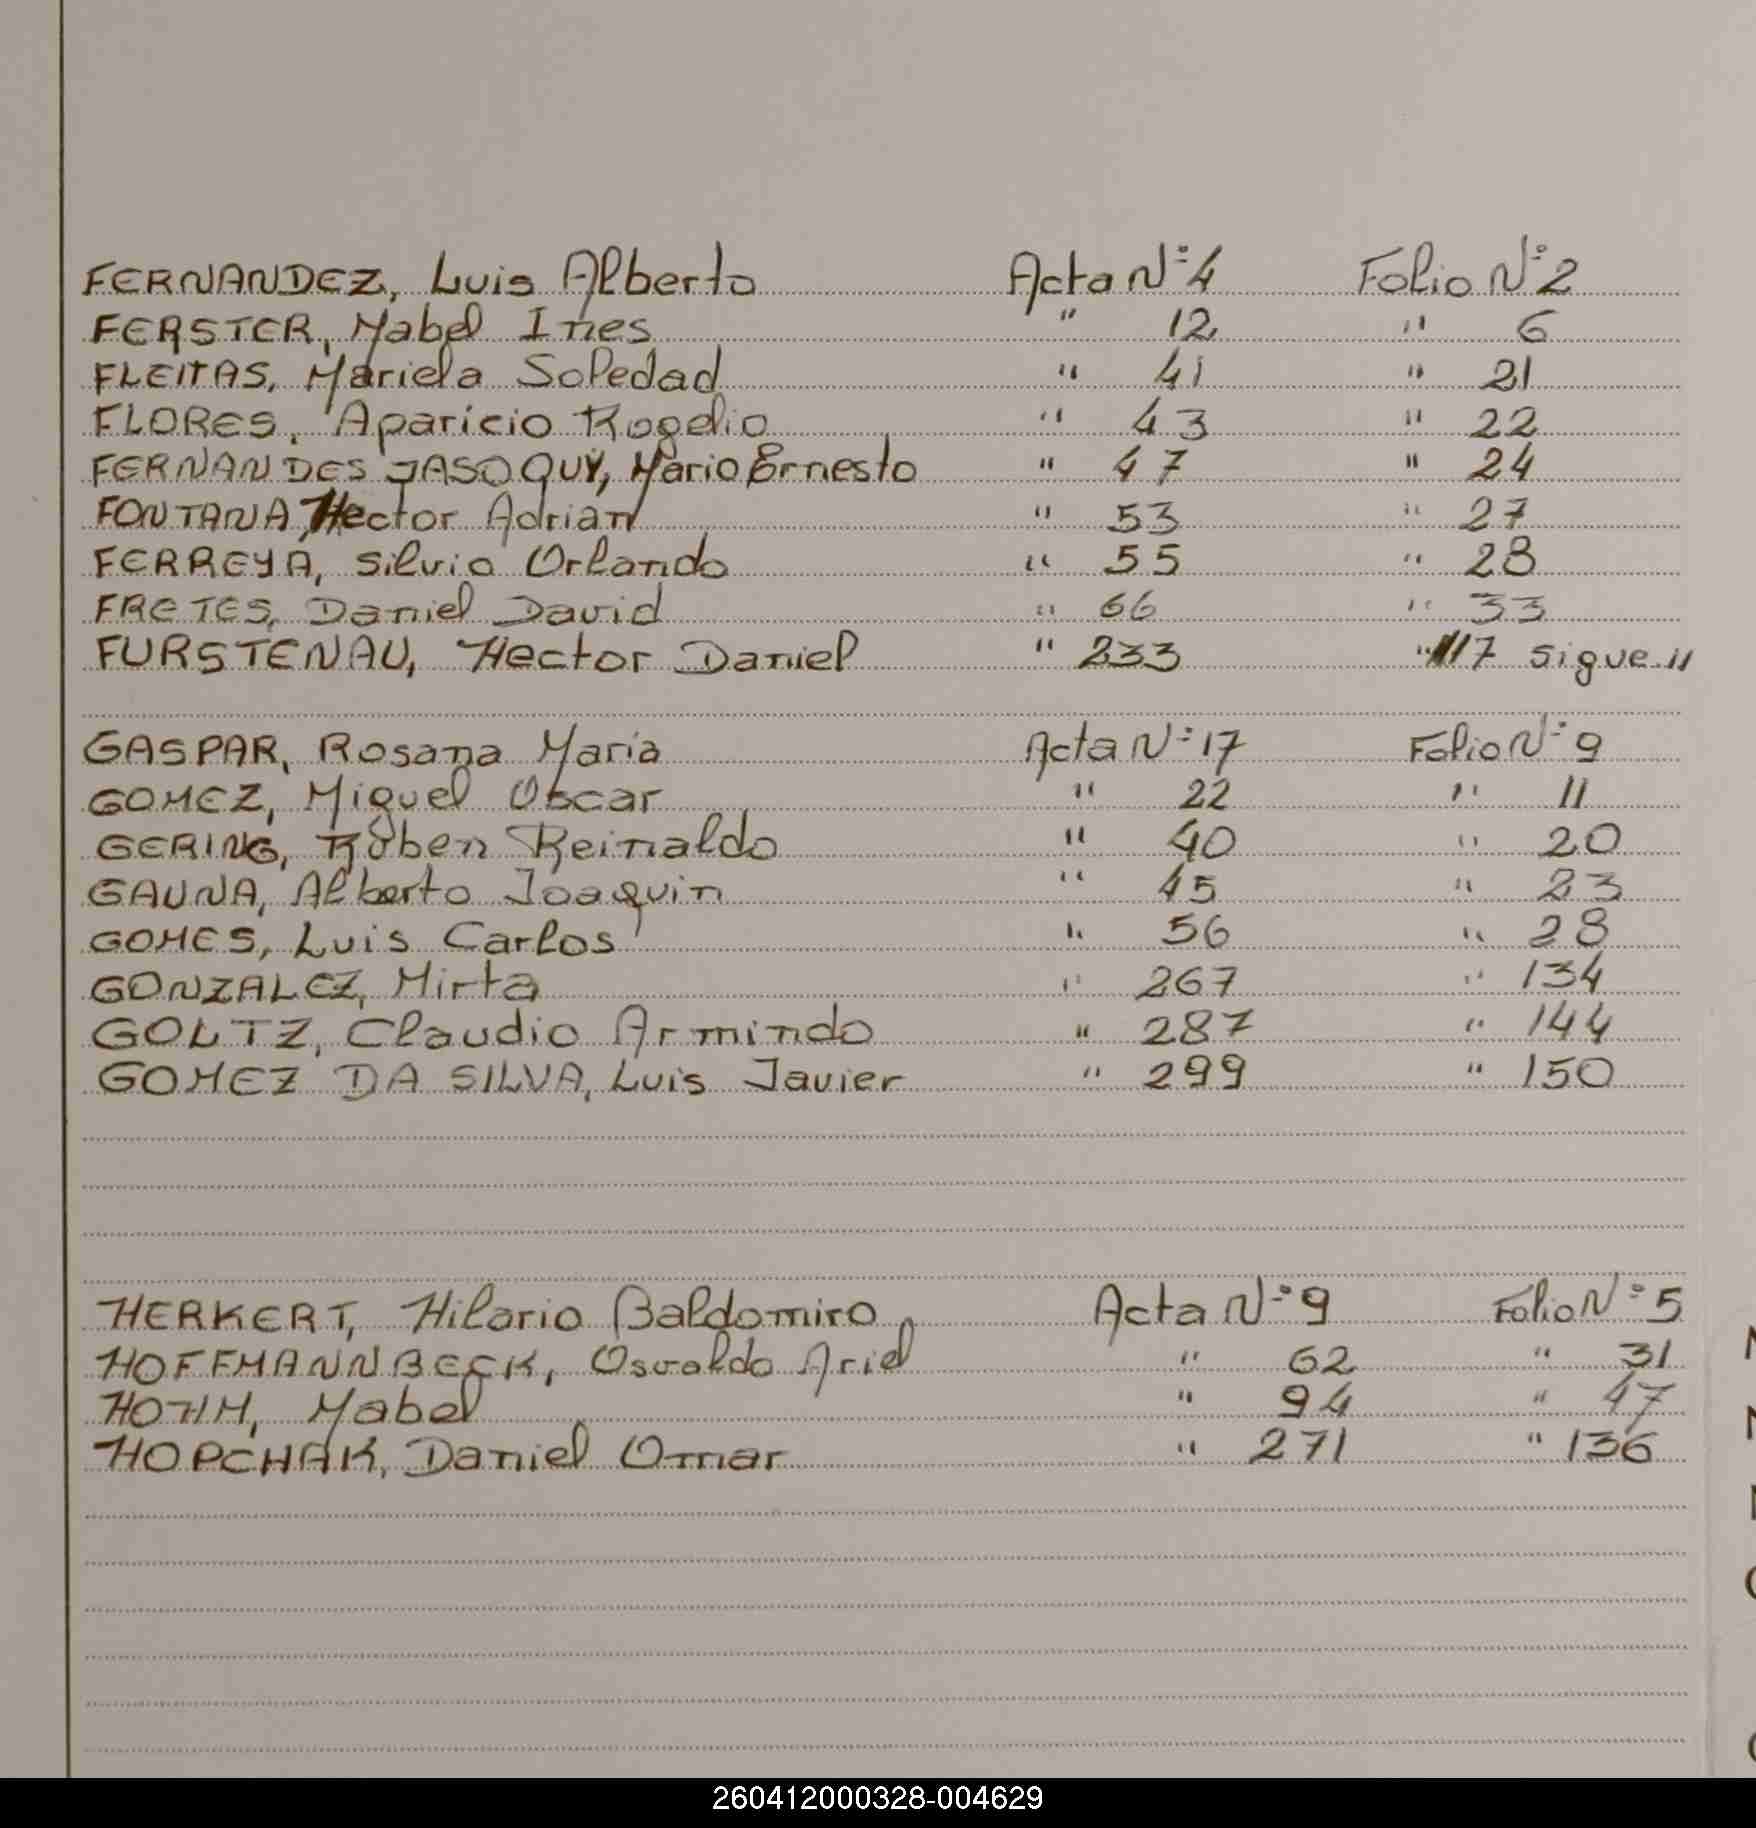 FERNANDEZ, Luis Alberto Acta N° 4 Folio N° 2
FERSTER, Mabel Ines " 12 " 6
FLEITAS, Mariela Soledad " 41 " 21
FLORES, Aparicio Rogelio " 43 " 22
FERNANDES JASOQUY, Mario Ernesto " 47 " 24
FONTANA, Hector Adrian " 53 " 27
FERREYA, Silvio Orlando " 55 " 28
FRETES, Daniel David " 66 " 33
FURSTENAU, Hector Daniel " 233 " 117 sigue //
GASPAR, Rosana Maria Acta N° 17 Folio N° 9
GOMEZ, Miguel Oscar " 22 " 11
GERING, Ruben Reinaldo " 40 " 20
GAUNA, Alberto Joaquin " 45 " 23
GOMES, Luis Carlos " 56 " 28
GONZALEZ, Mirta " 267 " 134
GOLTZ, Claudio Armindo " 287 " 144
GOMEZ DA SILVA, Luis Javier " 299 " 150
HERKERT, Hilario Baldomiro Acta N° 9 Folio N° 5
HOFFMANNBECK, Osvaldo Ariel " 62 " 31
Mabel " 94 " 47
HOPCHAK, Daniel Omar " 271 " 136
260412000328-004629